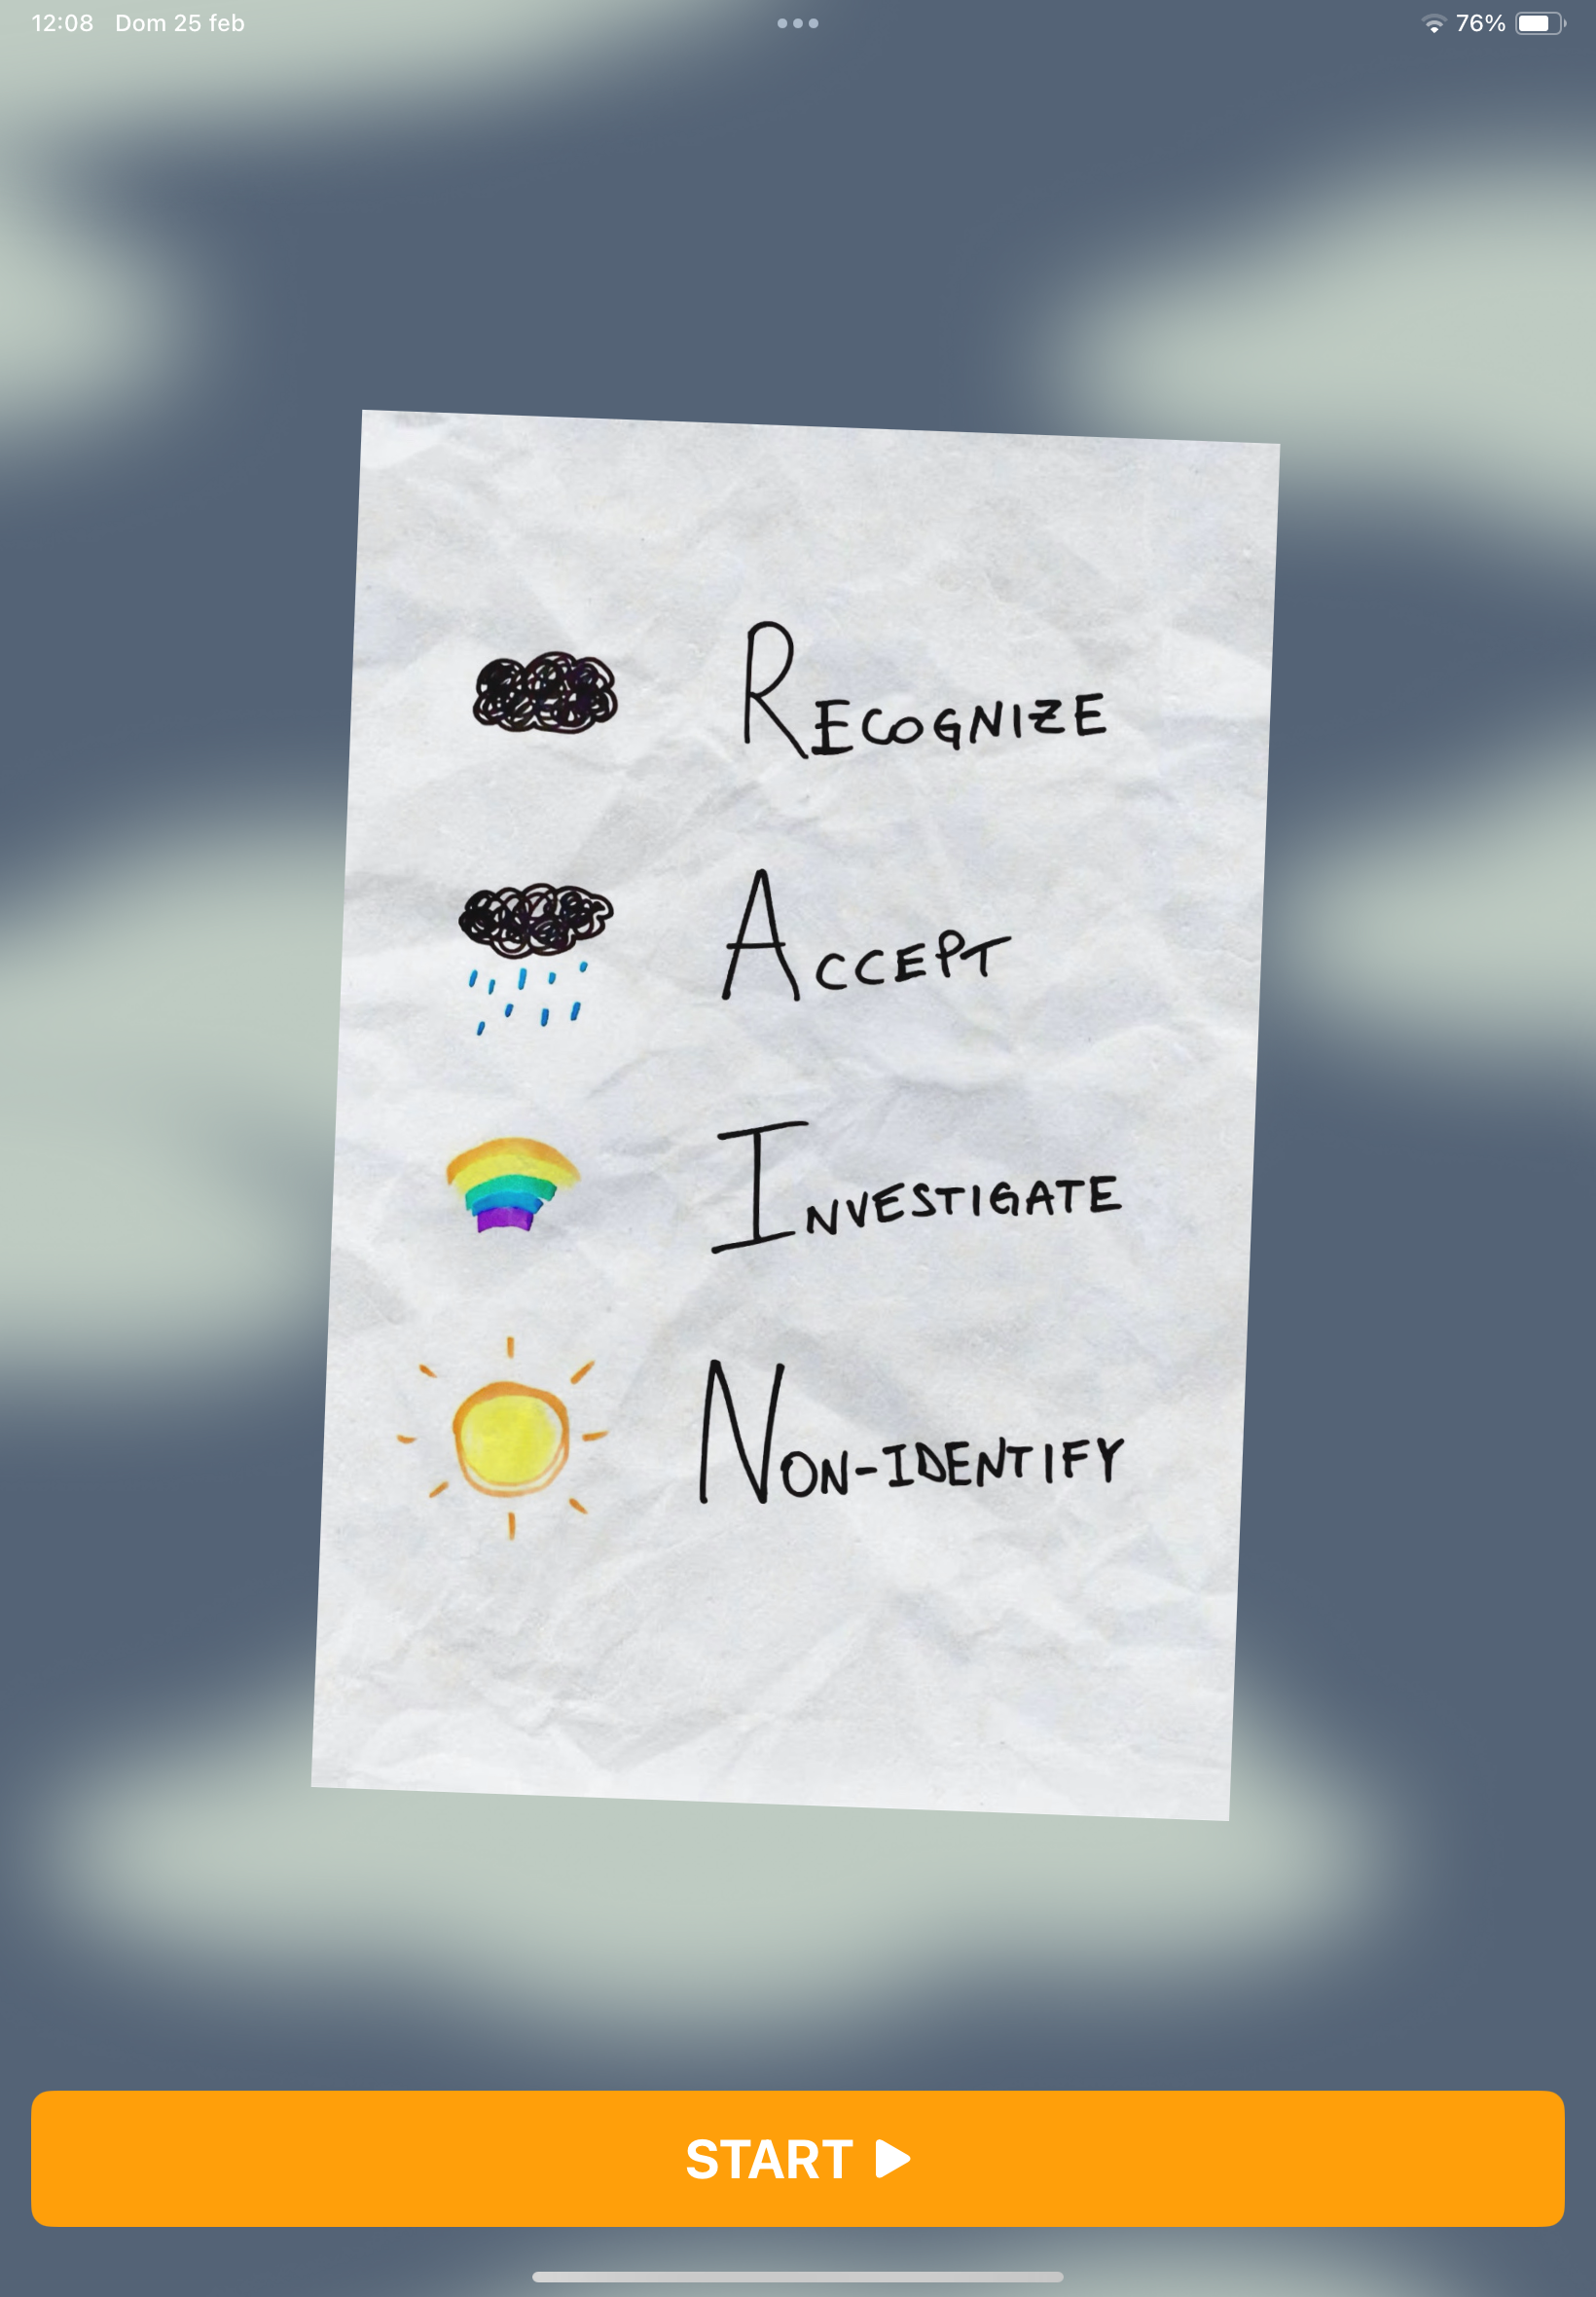 12:08 Dom 25 feb 76%
RECOGNIZE
ACCEPT
INVESTIGATE
NON-IDENTIFY
START